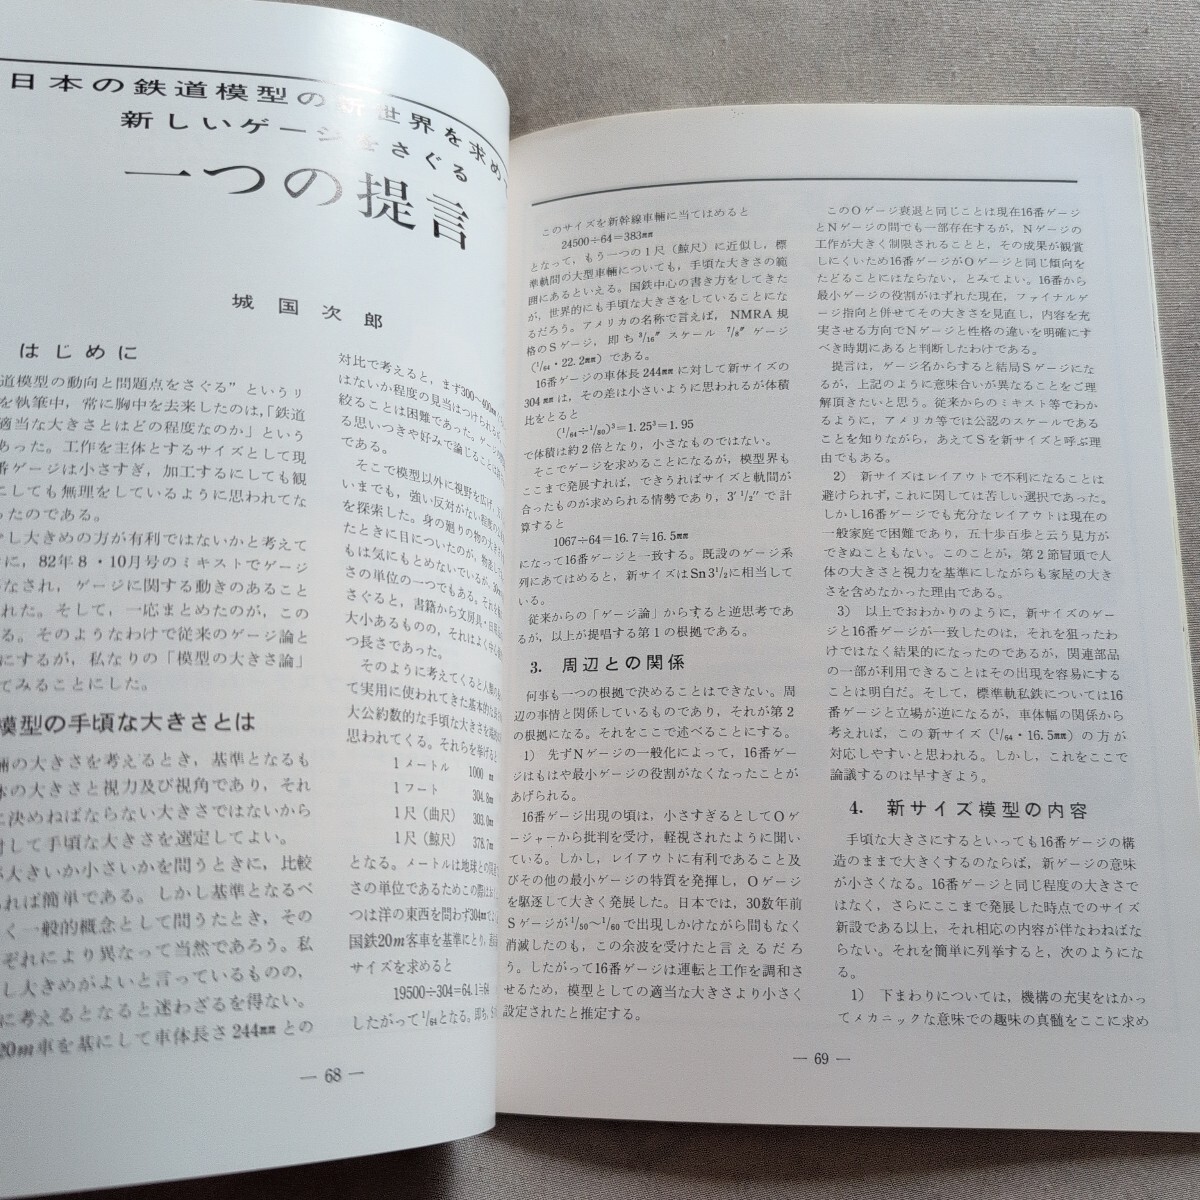 日本の鉄道模型の新世界を求めて
新しいゲージをさぐる
一つの提言
城国次郎
はじめに
道模型の動向と問題点をさぐる”というリ
を執筆中，常に胸中を去来したのは，「鉄道
適当な大きさとはどの程度なのか」という
あった。工作を主体とするサイズとして現
番ゲージは小さすぎ，加工するにしても観
にしても無理をしているように思われてな
ったのである。
少し大きめの方が有利ではないかと考えて
に，82年8・10月号のミキストでゲージ
がなされ，ゲージに関する動きのあること
れた。そして，一応まとめたのが，この
る。そのようなわけで従来のゲージ論と
にするが，私なりの「模型の大きさ論」
てみることにした。
模型の手頃な大きさとは
輛の大きさを考えるとき，基準となるも
体の大きさと視力及び視角であり，それ
に決めねばならない大きさではないから
対して手頃な大きさを選定してよい。
が大きいか小さいかを問うときに，比較
れば簡単である。しかし基準となるべ
く一般的概念として問うたとき，その
ぞれにより異なって当然であろう。私
し大きめがよいと言っているものの，
に考えるとなると迷わざるを得ない。
20m車を基にして車体長さ244㎜との
対比で考えると，まず300〜400㎜
はないか程度の見当はつけられる
絞ることは困難であった。ゲー
る思いつきや好みで論じることは
である。
そこで模型以外に視野を広げ，
いまでも，強い反対がない程度の
を探索した。身の廻りの物の大きさ
たときに目についたのが，物差し
もは気にもとめないでいるが，30
さの単位の一つでもある。それを
さぐると，書籍から文房具・日用品
大小あるものの，それはよく
つ長さであった。
そのように考えてくると人間の
て実用に使われてきた基本的な
大公約数的な手頃な大きさを
思われてくる。それらを挙げると
1メートル 1000㎜
1フート 304.8㎜
1尺（曲尺） 303.0㎜
1尺（鯨尺） 378.7㎜
となる。メートルは地球との関
さの単位であるためこの際は
つは洋の東西を問わず304㎜で
国鉄20m客車を基準にとり，
サイズを求めると
19500÷304=64.1≒64
したがって1/64となる。即ち，
— 68 —
このサイズを新幹線車輛に当てはめると
24500÷64=383㎜
となって，もう一つの1尺（鯨尺）に近似し，標
準軌間の大型車輛についても，手頃な大きさの範
囲にあるといえる。国鉄中心の書き方をしてきた
が，世界的にも手頃な大きさをしていることにな
るだろう。アメリカの名称で言えば，NMRA規
格のSゲージ，即ち3/16″スケール7/8″ゲージ
（1/64・22.2㎜）である。
16番ゲージの車体長244㎜に対して新サイズの
304㎜は，その差は小さいように思われるが体積
比をとると
(1/64÷1/80)³=1.25³=1.95
で体積は約2倍となり，小さなものではない。
そこでゲージを求めることになるが，模型界も
ここまで発展すれば，できうればサイズと軌間が
合ったものが求められる情勢であり，3′1/2″で計
算すると
1067÷64=16.7≒16.5㎜
になって16番ゲージと一致する。既設のゲージ系
列にあてはめると，新サイズはSn3 1/2に相当して
いる。
従来からの「ゲージ論」からすると逆思考であ
るが，以上が提唱する第1の根拠である。
3. 周辺との関係
何事も一つの根拠で決めることはできない。周
辺の事情と関係しているものであり，それが第2
の根拠になる。それをここで述べることにする。
1) 先ずNゲージの一般化によって，16番ゲー
ジはもはや最小ゲージの役割がなくなったことが
あげられる。
16番ゲージ出現の頃は，小さすぎるとしてOゲ
ージャーから批判を受け，軽視されたように聞い
ている。しかし，レイアウトに有利であること及
びその他の最小ゲージの特質を発揮し，Oゲージ
を駆逐して大きく発展した。日本では，30数年前
Sゲージが1/50〜1/60で出現しかけながら間もなく
消滅したのも，この余波を受けたと言えるだろ
う。したがって16番ゲージは運転と工作を調和さ
せるため，模型としての適当な大きさより小さく
設定されたと推定する。
このOゲージ衰退と同じことは現在16番ゲージ
とNゲージの間でも一部存在するが，Nゲージの
工作が大きく制限されることと，その成果が観賞
しにくいため16番ゲージがOゲージと同じ傾向を
たどることにはならない，とみてよい。16番から
最小ゲージの役割がはずれた現在，ファイナルゲ
ージ指向と併せてその大きさを見直し，内容を充
実させる方向でNゲージと性格の違いを明確にす
べき時期にあると判断したわけである。
提言は，ゲージ名からすると結局Sゲージにな
るが，上記のように意味合いが異なることをご理
解頂きたいと思う。従来からのミキスト等でわか
るように，アメリカ等では公認のスケールである
ことを知りながら，あえてSを新サイズと呼ぶ理
由でもある。
2) 新サイズはレイアウトで不利になることは
避けられず，これに関しては苦しい選択であった。
しかし16番ゲージでも充分なレイアウトは現在の
一般家庭で困難であり，五十歩百歩と云う見方が
できぬこともない。このことが，第2節冒頭で人
体の大きさと視力を基準にしながらも家屋の大き
さを含めなかった理由である。
3) 以上でおわかりのように，新サイズのゲー
ジと16番ゲージが一致したのは，それを狙ったわ
けではなく結果的になったのであるが，関連部品
の一部が利用できることはその出現を容易にする
ことは明白だ。そして，標準軌私鉄については16
番ゲージと立場が逆になるが，車体幅の関係から
考えれば，この新サイズ（1/64・16.5㎜）の方が
対応しやすいと思われる。しかし，これをここで
論議するのは早すぎよう。
4. 新サイズ模型の内容
手頃な大きさにするといっても16番ゲージの構
造のままで大きくするのならば，新ゲージの意味
が小さくなる。16番ゲージと同じ程度の大きさで
はなく，さらにここまで発展した時点でのサイズ
新設である以上，それ相応の内容が伴なわねばな
らない。それを簡単に列挙すると，次のようにな
る。
1) 下まわりについては，機構の充実をはかっ
てメカニックな意味での趣味の真髄をここに求め
— 69 —